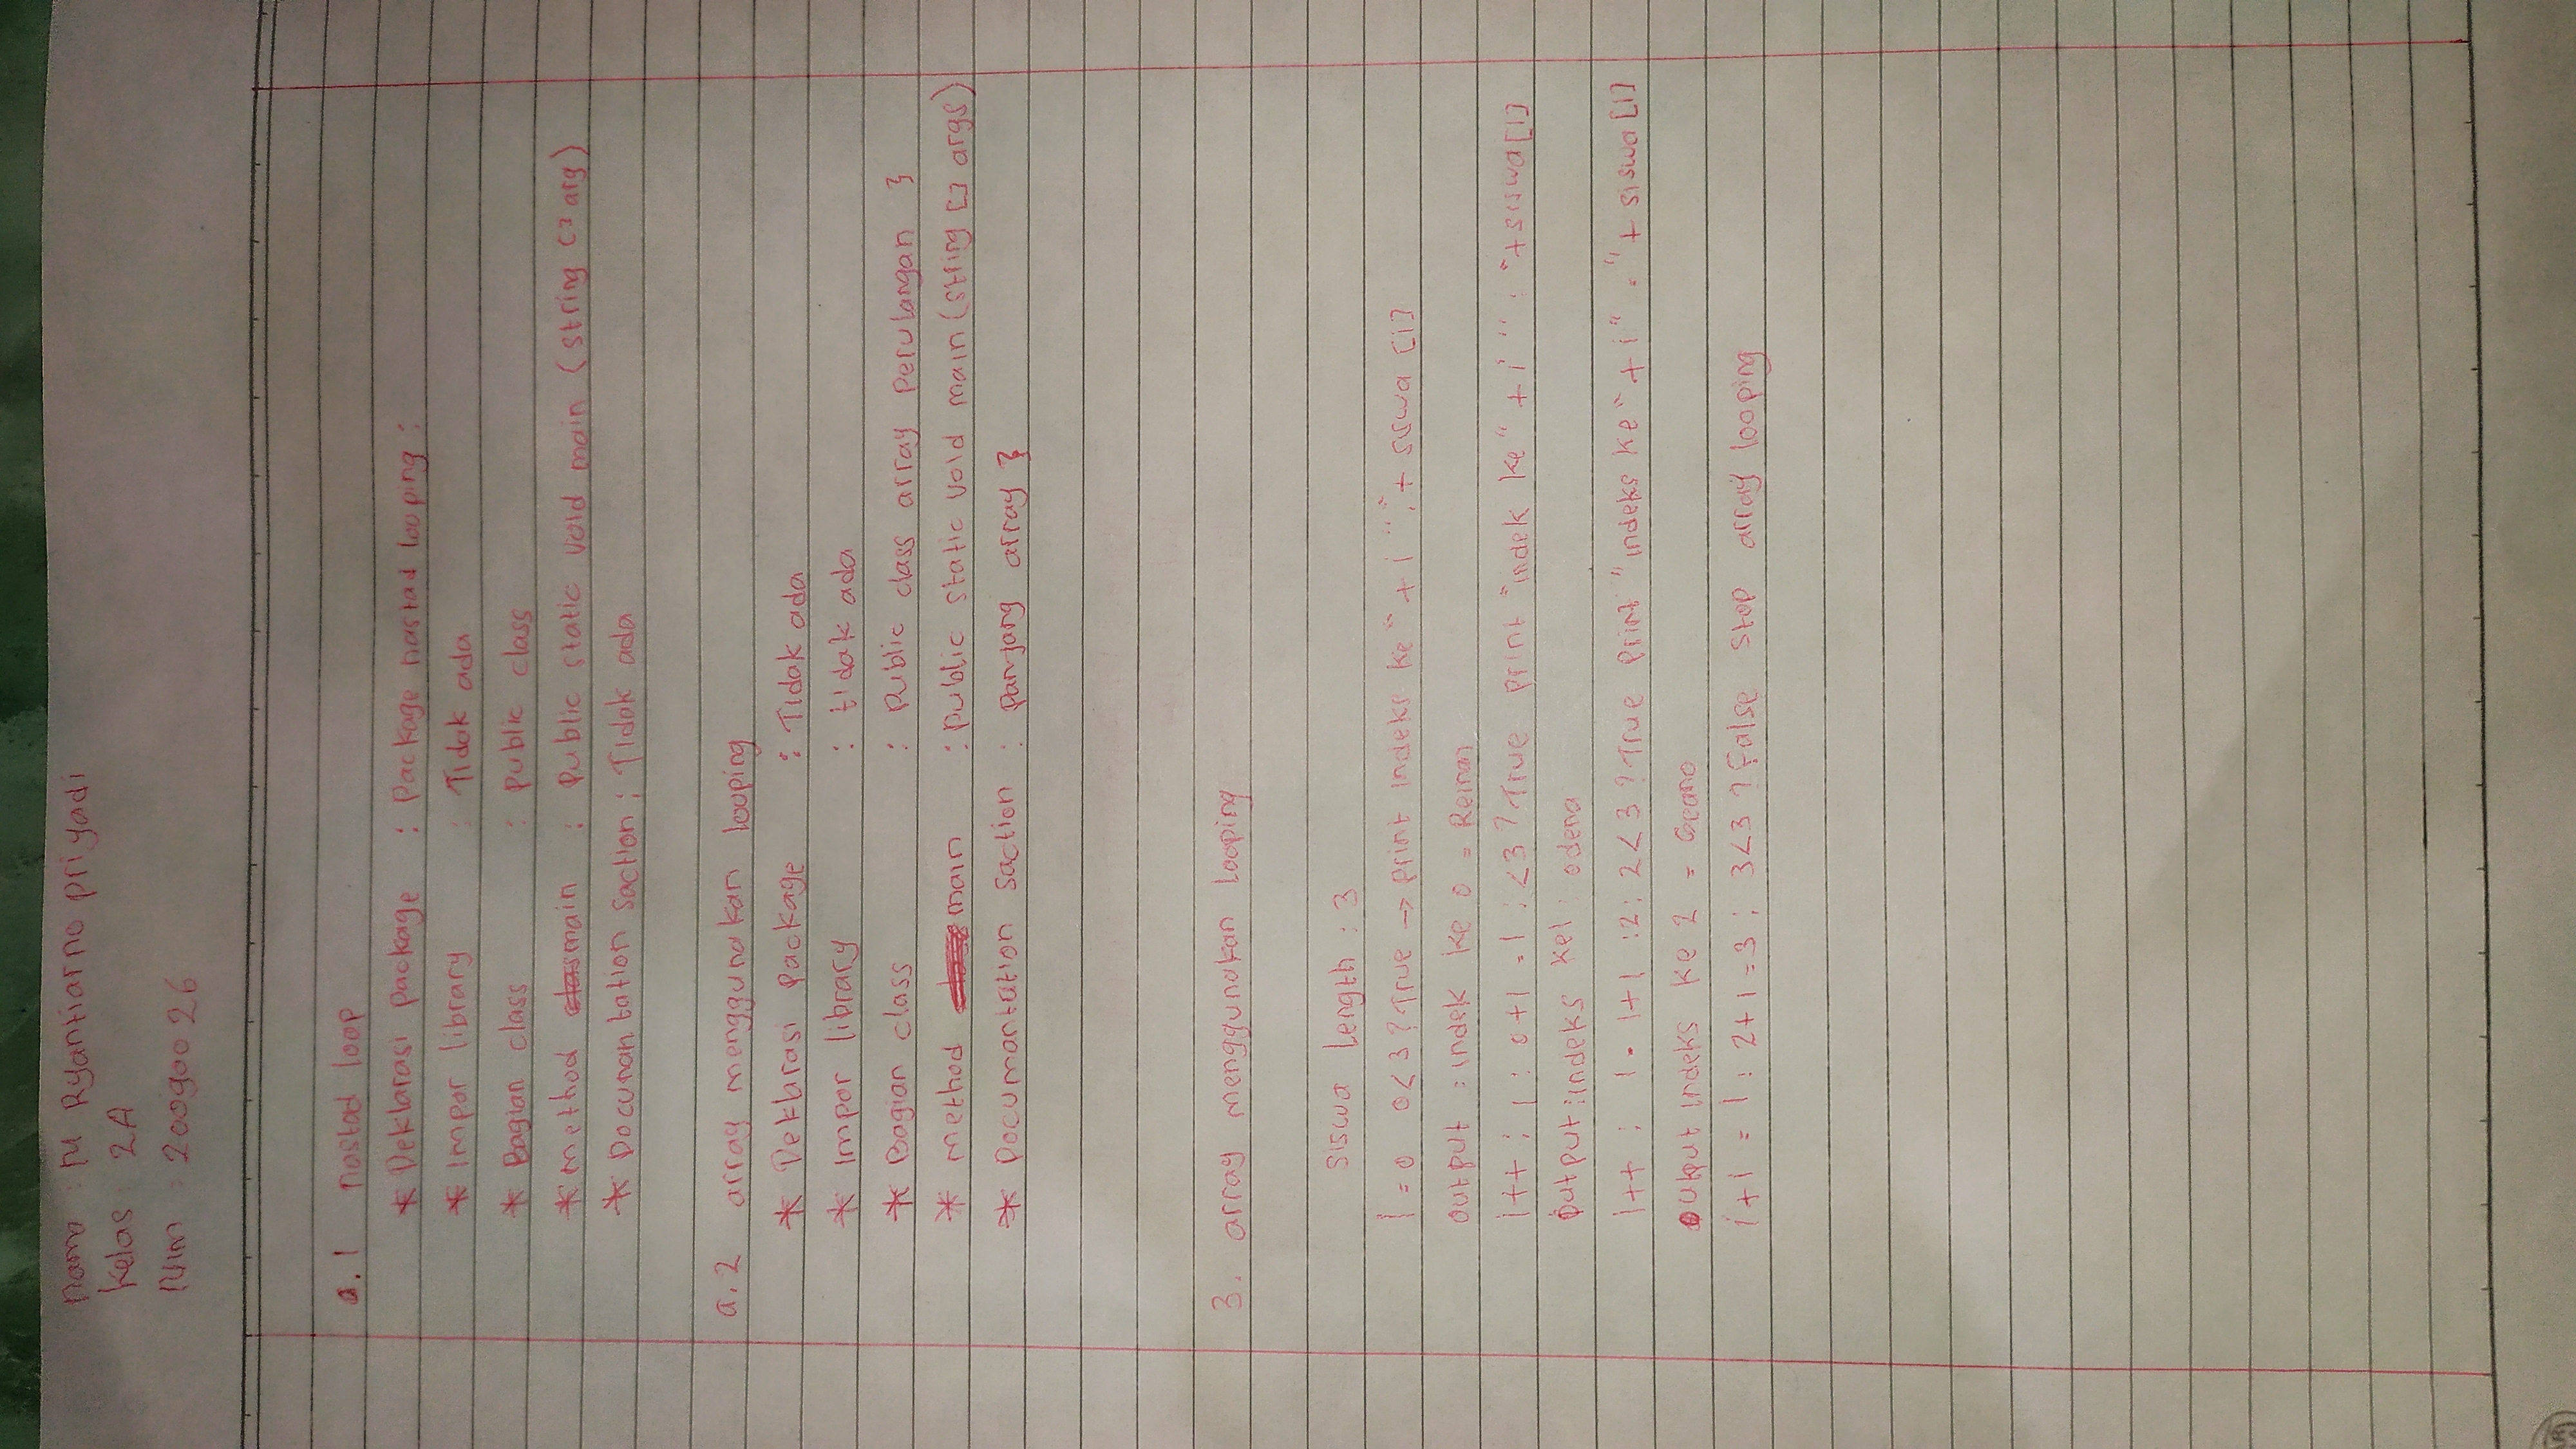 nama : M Ryantiarno priyadi
Kelas : 2A
Nim : 20090026
a.1 nastad loop
* Deklarasi package : Package nastad looping :
* Impor library : Tidak ada
* Bagian class : public class
* method main : public static void main (string [] arg)
* Documantation saction : Tidak ada
a.2 array menggunakan looping
* Deklarasi package : Tidak ada
* Impor library : tidak ada
* Bagian class : public class array perulangan }
* method main : public static void main (string [] args)
* Documantation saction : panjang array }
3. array menggunakan looping
siswa length : 3
i = 0 0<3 ? True → print indeks ke " + i " : " + siswa [i]
output : indek ke 0 = Reinan
i++ ; i : 0+1 = 1 : <3 ? True print "indek ke" + i " : " + siswa [i]
output : indeks ke 1 : odena
i++ ; i = 1+1 : 2 ; 2<3 ? True print "indeks ke" + i " = " + siswa [i]
output indeks ke 2 =
i+1 = i : 2+1 = 3 ; 3<3 ? False stop array looping